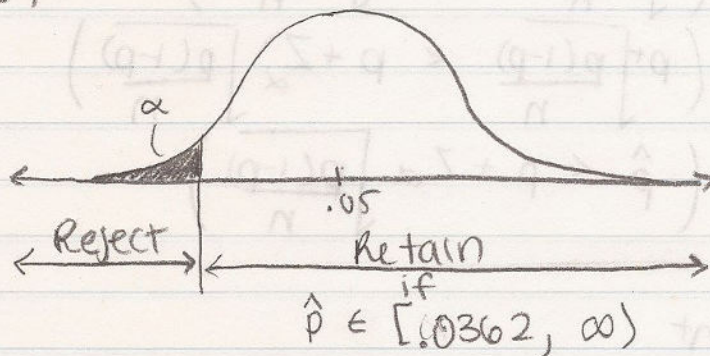 α
.05
Reject Retain
if
p̂ ∈ [.0362, ∞)